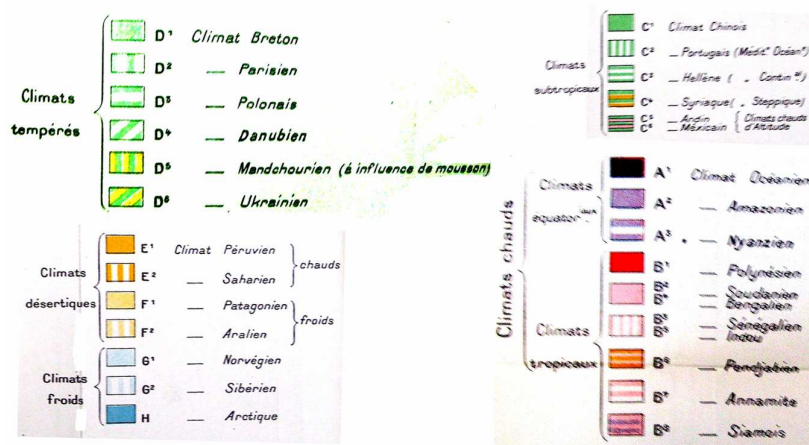 Climats tempérés
D¹ Climat Breton
D² — Parisien
D³ — Polonais
D⁴ — Danubien
D⁵ — Mandchourien (à influence de mousson)
D⁶ — Ukrainien
Climats désertiques
E¹ Climat Péruvien
E² — Saharien
chauds
F¹ — Patagonien
F² — Aralien
froids
Climats froids
G¹ — Norvégien
G² — Sibérien
H — Arctique
Climats subtropicaux
C¹ Climat Chinois
C² — Portugais (Méditⁿ Océanⁿ)
C³ — Hellène ( „ Continᵃˡ)
C⁴ — Syriaque ( „ Steppique)
C⁵ — Andin
C⁶ — Méxicain
Climats chauds d'Altitude
Climats chauds
Climats équatoriaux
A¹ Climat Océanien
A² — Amazonien
A³ — Nyanzien
Climats tropicaux
B¹ — Polynésien
B² — Soudanien
B⁴ — Bengalien
B³ — Sénégalien
B⁵ — Indou
B⁶ — Pendjabien
B⁷ — Annamite
B⁸ — Siamois